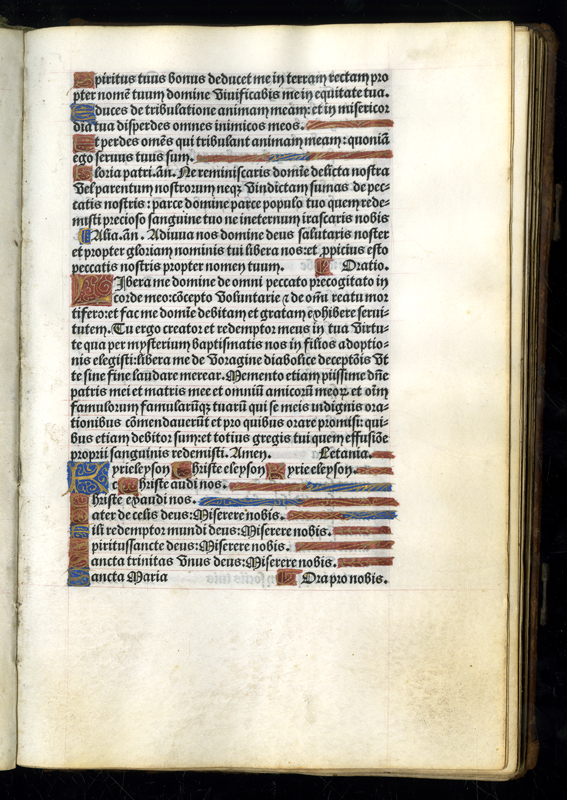 Spiritus tuus bonus deducet me in terram rectam pro
pter nomē tuum domine viuificabis me in equitate tua.
Educes de tribulatione animam meam: et in misericor
dia tua disperdes omnes inimicos meos.
Et perdes omēs qui tribulant animam meam: quoniā
ego seruus tuus sum.
Gloria patri. añ. Ne reminiscaris domīe delicta nostra
vel parentum nostrorum neqꝫ vindictam sumas de pec-
catis nostris: parce domine parce populo tuo quem rede-
misti precioso sanguine tuo ne ineternum irascaris nobis
Alia. añ. Adiuua nos domine deus salutaris noster
et propter gloriam nominis tui libera nos: et ꝓpicius esto
peccatis nostris propter nomen tuum. Oratio.
LIbera me domine de omni peccato precogitato in
corde meo: cōcepto voluntarie ⁊ de om̄i reatu mor
tifero: et fac me domīe debitam et gratam exhibere serui-
tutem. Tu ergo creator et redemptor meus in tua virtu-
te qua per mysterium baptismatis nos in filios adoptio-
nis elegisti: libera me de voragine diabolice deceptōis vt
te sine fine laudare merear. Memento etiam piissime dñe
patris mei et matris mee et omniū amicorū meoꝝ et oīm
famulorum famularūqꝫ tuarū qui se meis indignis ora-
tionibus cōmendauerūt et pro quibus orare promisi: qui-
bus etiam debitor sum: et totius gregis tui quem effusiōe
proprii sanguinis redemisti. Amen. Letania.
Kyrieleyson Christe eleyson Kyrie eleyson.
Christe audi nos.
Christe exaudi nos.
Pater de celis deus: Miserere nobis.
Fili redemptor mundi deus: Miserere nobis.
Spiritussancte deus: Miserere nobis.
Sancta trinitas vnus deus: Miserere nobis.
Sancta Maria Ora pro nobis.